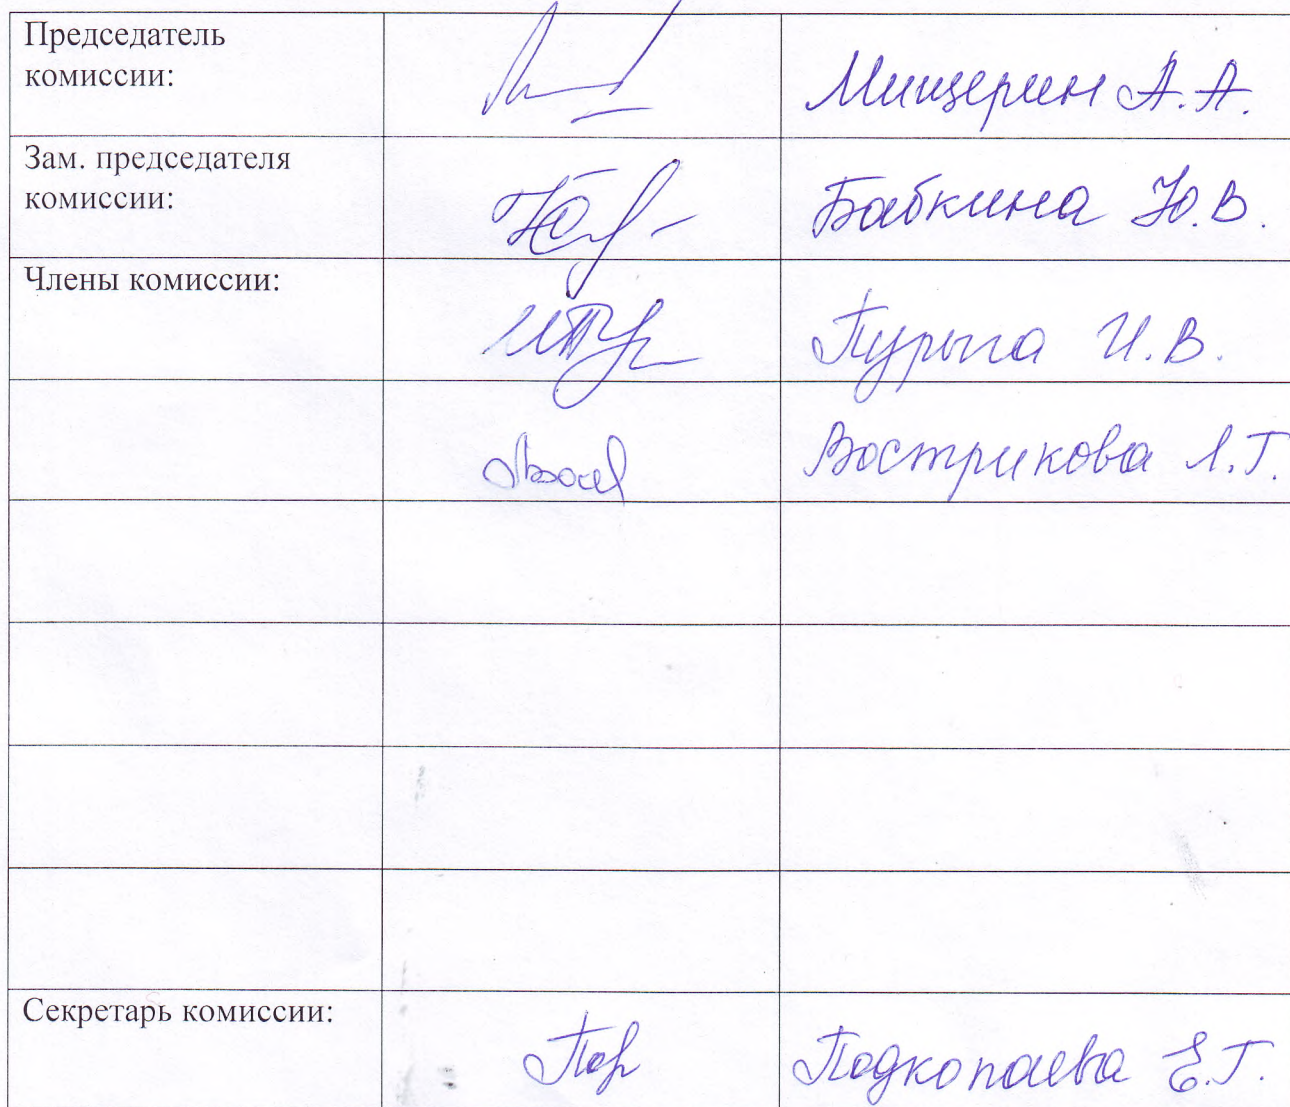 Председатель
комиссии:
Мищерин А.А.
Зам. председателя
комиссии:
Бабкина Ю.В.
Члены комиссии:
Пурыга И.В.
Вострикова Л.Г.
Секретарь комиссии:
Подкопаева Е.Г.